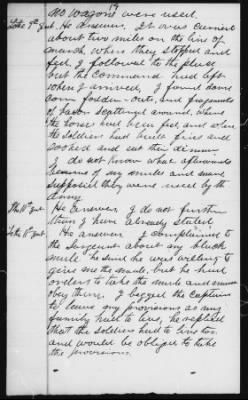 17
No wagons were used.
To the 9th Int. He answers, It was carried
about two miles on the line of
march, where they stopped and
fed, I followed to the place
but the command had left
when I arrived, I found some
corn, fodder, oats, and fragments
of bacon scattered around, where
the horses had been fed, and where
the soldiers had built fires and
cooked and eat their dinner.
I do not know what afterwards
became of my mules and same
supposed they were used by the
Army.
The 10th Int. He answers, I do not further
than I have already stated
To the 11th Int. He answers I complained to
the Sergeant about my black
mule he said he was willing to
give me the mule, but he had
orders to take the mule and must
obey them, I begged the Captain
to leave my provisions as my
family had to live, he replied
that the soldiers had to live too
and would be obliged to take
the provisions.